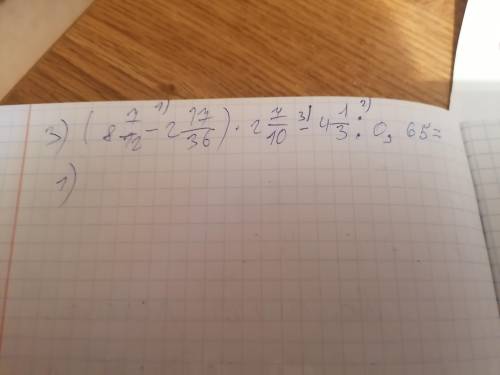 3) (8 7/12 - 2 17/36) · 2 7/10 - 4 1/3 : 0,65=
1) 3) 2)
1)